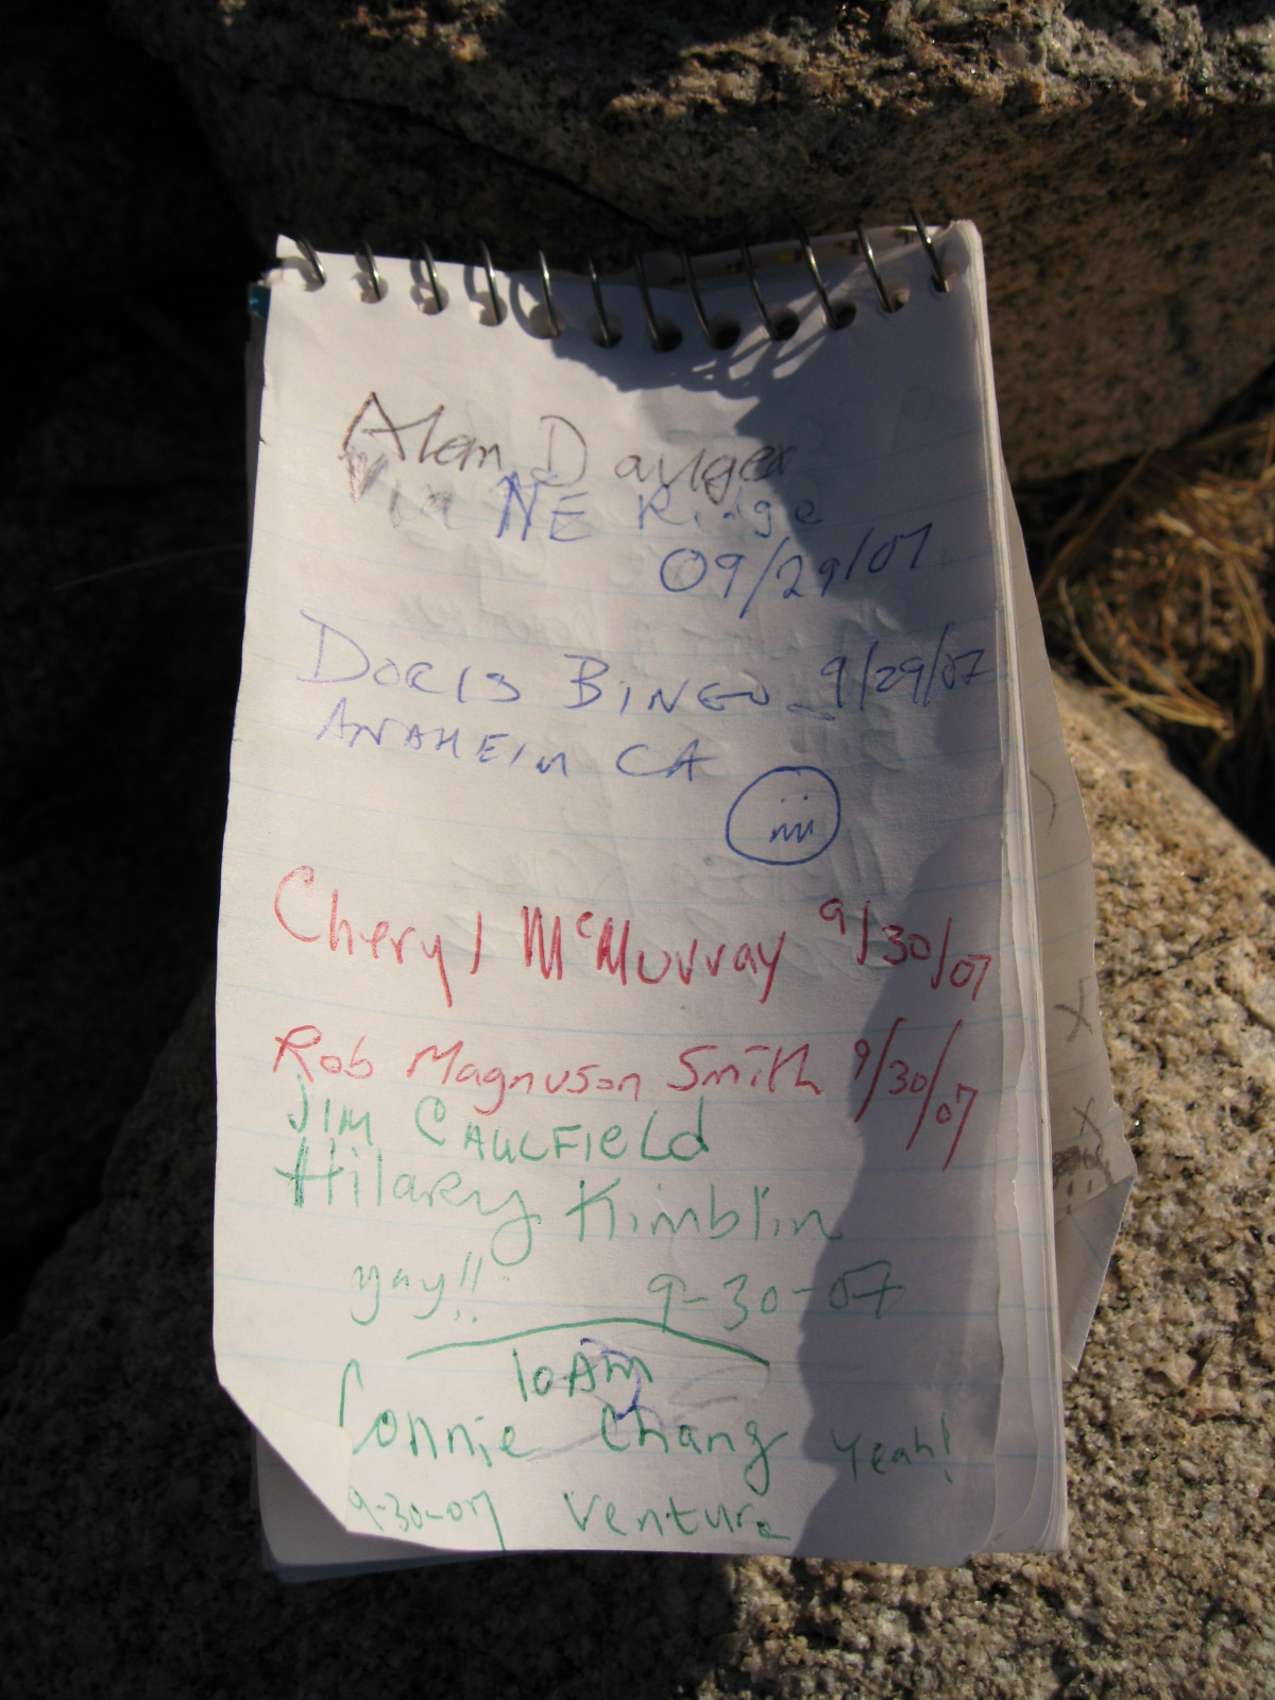 Alan Danger
Via NE Ridge
09/29/07
DORIS BINGO 9/29/07
ANAHEIM CA
Cheryl McMurray 9/30/07
Rob Magnuson Smith 9/30/07
JIM CAULFIELd
Hilary Kimblin
yay!! 9-30-07
10AM
Connie Chang Yeah!
9-30-07 Ventura